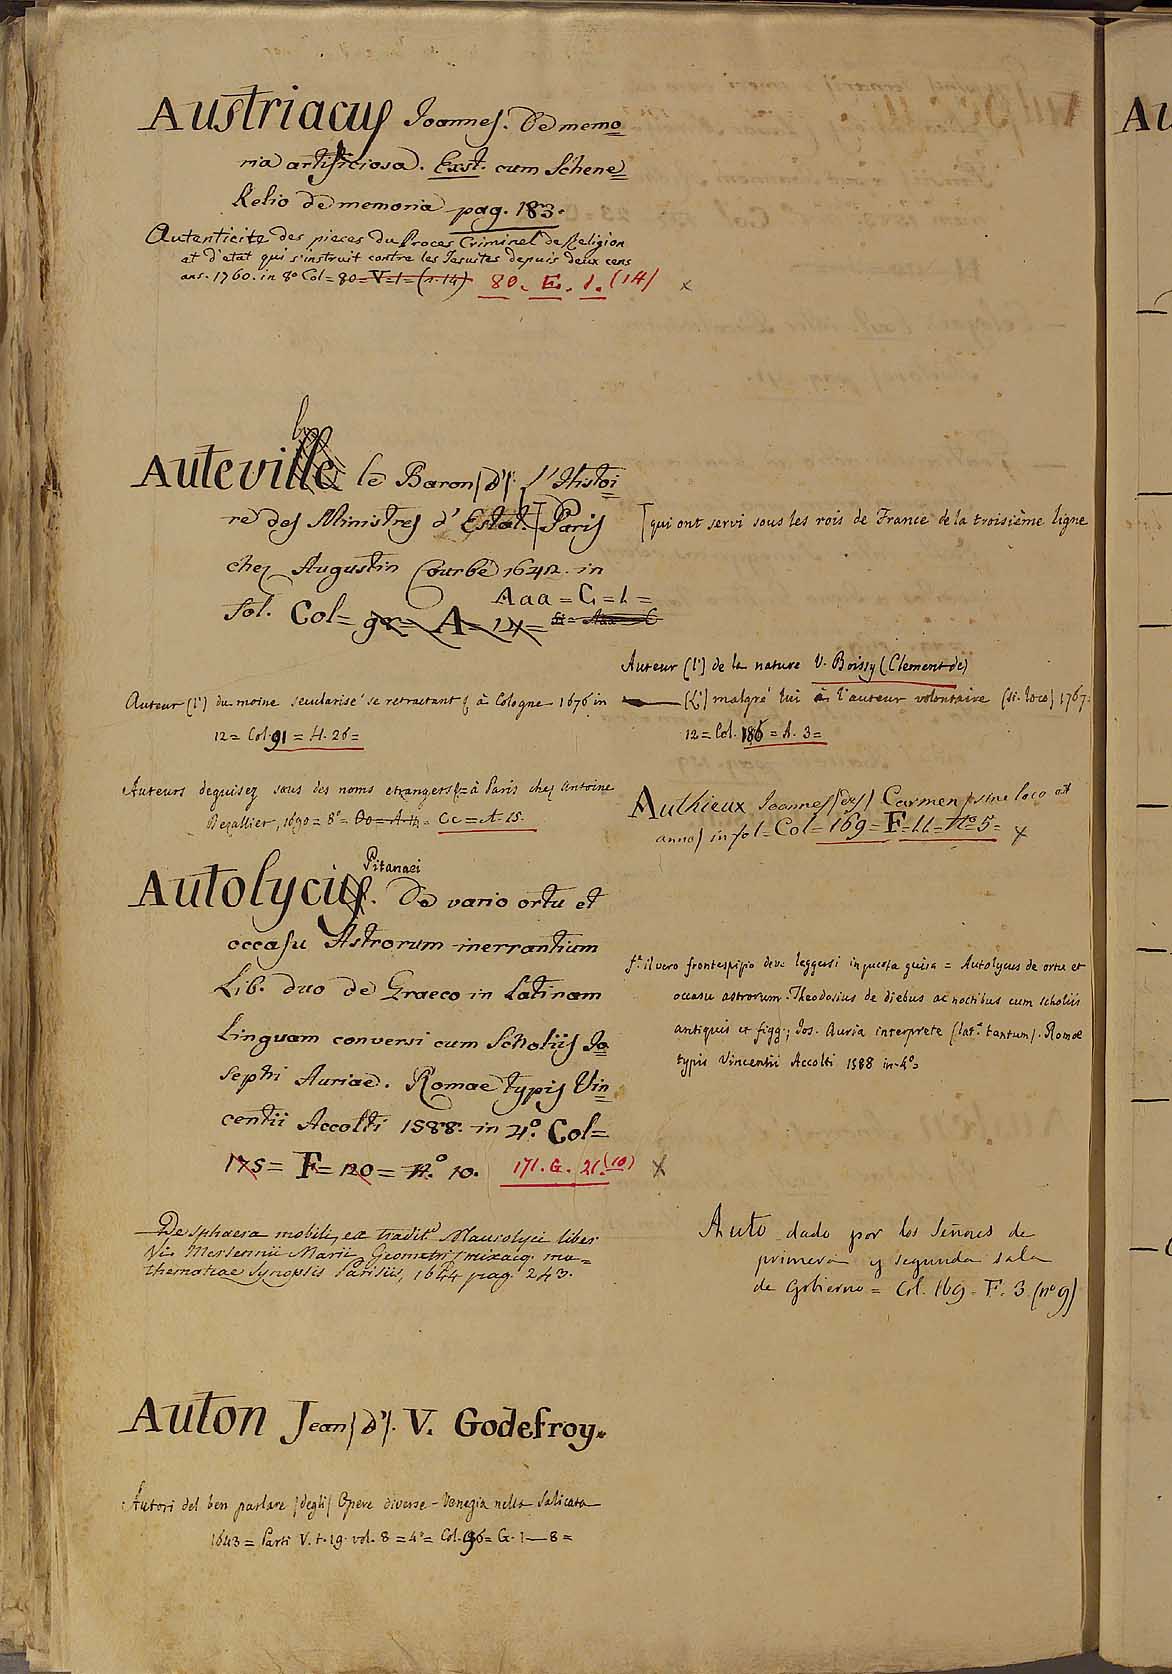 Austriacus Joannes. De memo=
ria artificiosa. Exst. cum Schene=
Kelio de memoria pag. 183.
Autenticite des pieces du Proces Criminel de Religion
et d'etat qui s'instruit contre les Jesuites depuis deux cens
ans. 1760. in 8º Col=80=V=1=(n.14) 80. E. 1. (14) x
Auteville le Baron (d'). l'Histoi=
re des Ministres d'Estat. Paris
chez Augustin Courbé 1642. in
Aaa = G = 1 =
fol. Col= A = 14=
Auteur (l') du moine secularisé se retractant à Cologne 1676 in
12 = Col. 91 = H. 26 =
Auteurs deguisez sous des noms etrangers = à Paris chez Antoine
Dezallier, 1690 = 8º = Cc = A. 15.
Pitanaei
Autolycus. De vario ortu et
occasu Astrorum inerrantium
Lib. duo de Graeco in Latinam
Linguam conversi cum Scholiis Jo=
sephi Auriae. Romae typis Vin=
centii Accolti 1588. in 4º. Col=
175= F= 120= nº. 10. 171. G. 21. (10) x
De sphaera mobili, ex tradit. Maurolyci liber
Vis Mersennii Marii Geometri mixaeq. ma=
thematicae Synopsis Parisiis, 1644 pag. 243.
Auton Jean (d'). V. Godefroy.
Autori del ben parlare (degli) Opere diverse - Venezia nella Salicata
1643 = Parti V. t. 19. vol. 8 = 4º = Col. 96 = G. 1—8 =
qui ont servi sous les rois de France de la troisième ligne
Auteur (l') de la nature V. Boissy (Clement de)
— (L') malgré lui à l'auteur volontaire (si. loco) 1767.
12 = Col. 186 = A. 3 =
Authieux Joannes (des) Carmen (sine loco et
anno) in fol = Col = 169 = F = 11 = Nº 5 = x
il vero frontespizio deve leggersi in questa guisa = Autolycus de ortu et
occasu astrorum. Theodosius de diebus ac noctibus cum scholiis
antiquis et figg.; Jos. Auria interprete (lat.e tantum). Romae
typis Vincentii Accolti 1588 in-4º.
Auto dado por los Señores de
primera y segunda sala
de Gobierno = Col. 169. F. 3 (nº 9)
Au